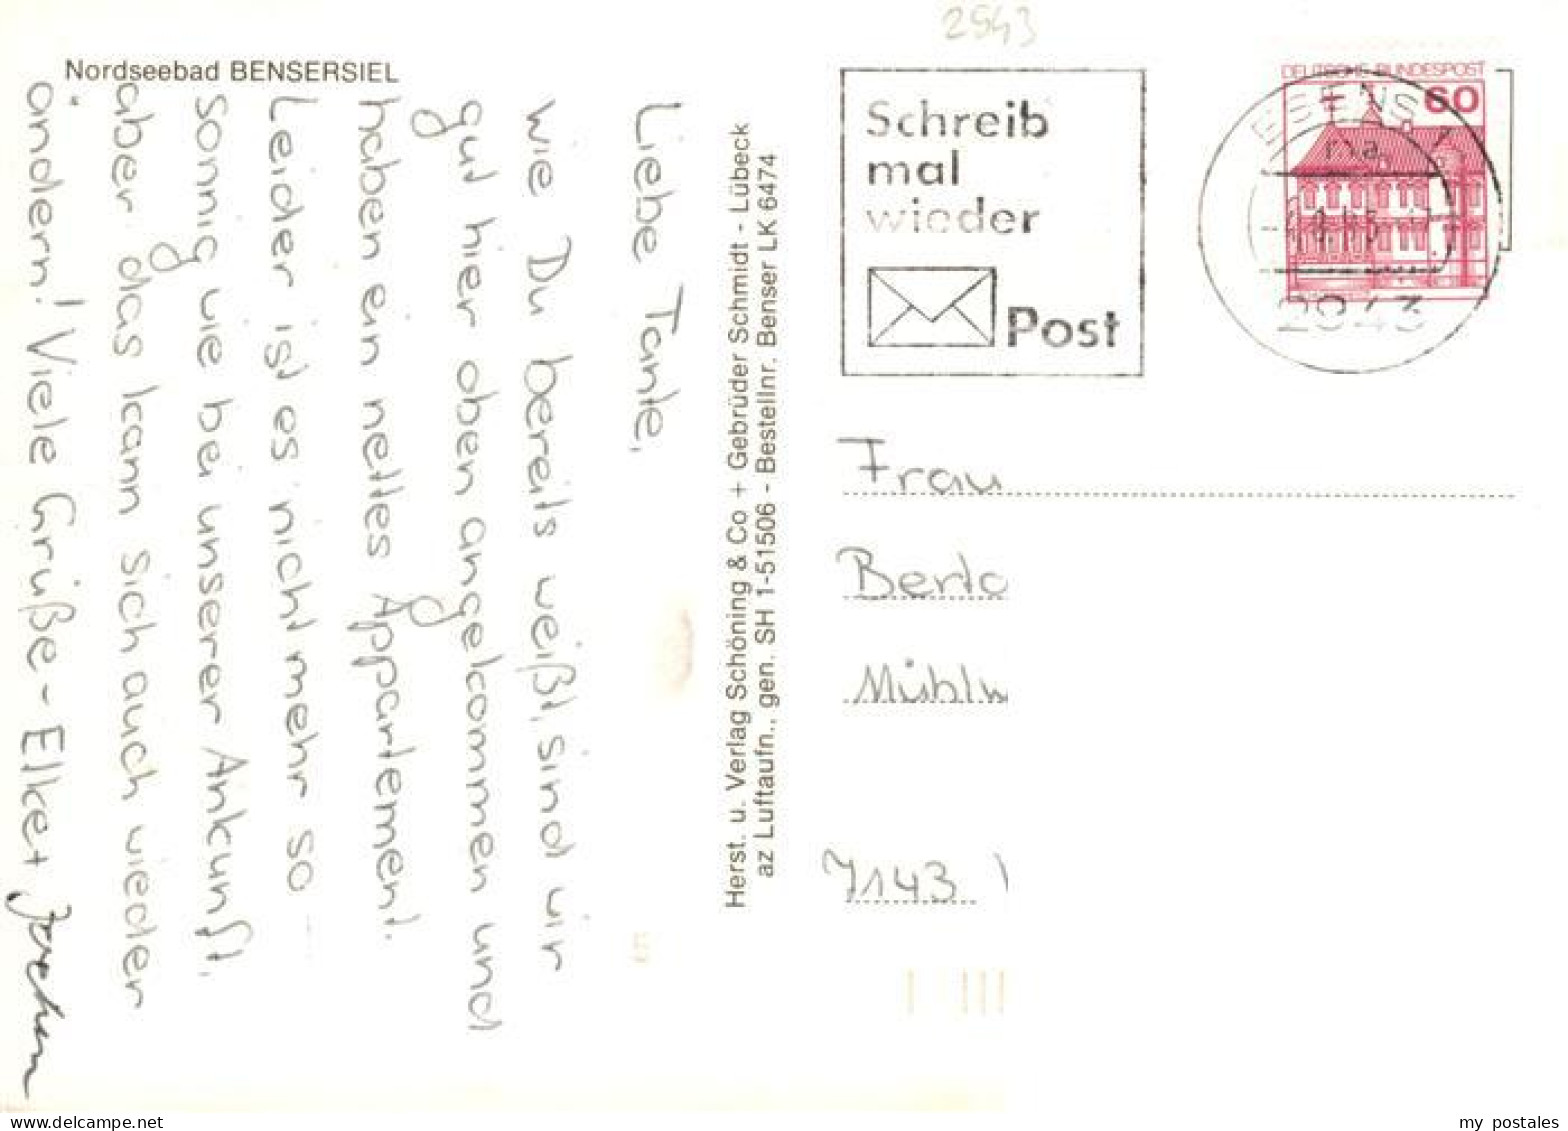 2943
Nordseebad BENSERSIEL
Liebe Tante,
wie Du bereits weißt, sind wir
gut hier oben angekommen und
haben ein nettes Appartement.
Leider ist es nicht mehr so
sonnig wie bei unserer Ankunft,
aber das kann sich auch wieder
ändern! Viele Grüße - Elke + Jochen
Herst. u. Verlag Schöning & Co + Gebrüder Schmidt - Lübeck
az Luftaufn., gen. SH 1-51506 - Bestellnr. Benser LK 6474
Schreib
mal
wieder
Post
DEUTSCHE BUNDESPOST
60
ESENS
2943
Frau
Berta
Mühlw
7143
my postales